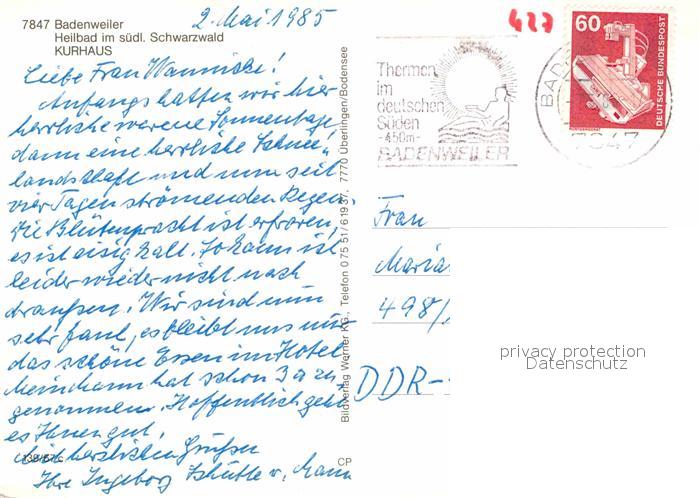 7847 Badenweiler
Heilbad im südl. Schwarzwald
KURHAUS
2. Mai 1985
Liebe Frau
Anfangs hatten wir hier
herrliche warme Sonnentage,
dann eine herrliche Schnee-
landschaft und nun seit
vier Tagen strömenden Regen.
Die Blütenpracht ist erfroren,
es ist eisig kalt. Jo kann ist
leider wieder nicht nach
draußen. Wir sind nun
sehr faul, es bleibt uns nur
das schöne Essen im Hotel.
Mein Mann hat schon 3 a zu-
genommen. Hoffentlich geht
es Ihnen gut.
Mit herzlichen Grüßen
Ihre Ingeborg Schütte u. Mann
CP
Bildverlag Werner KG., Telefon 0 75 51 / 6 19 37, 7770 Überlingen/Bodensee
427
Thermen
im
deutschen
Süden
-450m-
BADENWEILER
60
DEUTSCHE BUNDESPOST
7847
Frau
Maria
498/
DDR-
privacy protection
Datenschutz